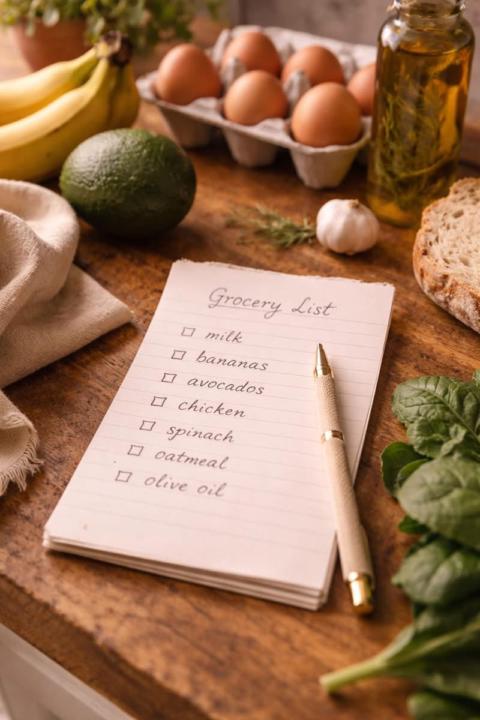 Grocery List
milk
bananas
avocados
chicken
spinach
oatmeal
olive oil